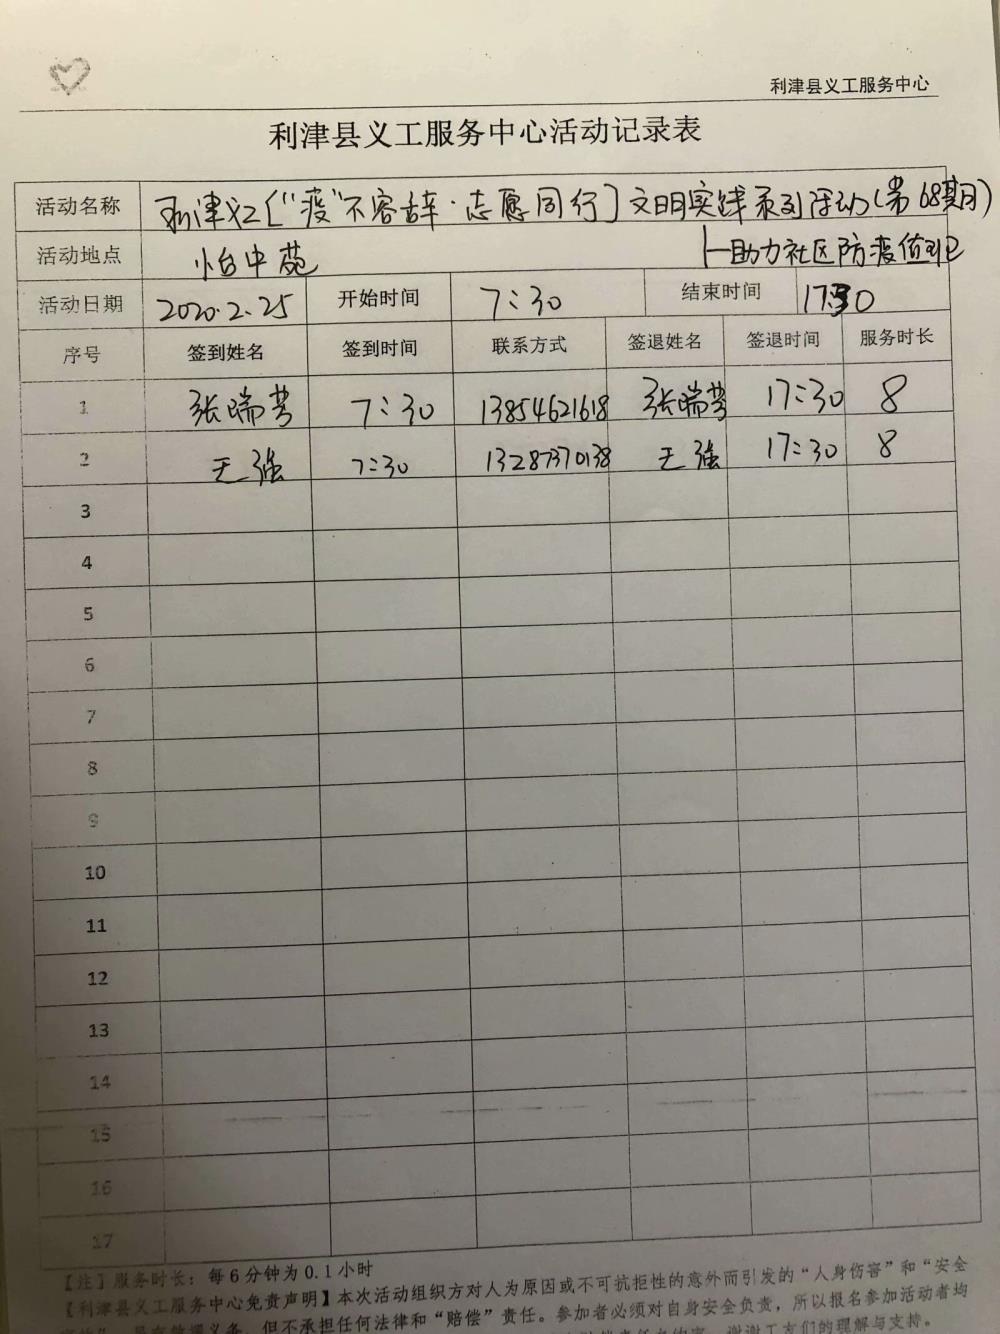 利津县义工服务中心
利津县义工服务中心活动记录表
活动名称 利津义工〔“疫”不容辞·志愿同行〕文明实践系列活动(第68期)
—助力社区防疫值班
活动地点 怡中苑
活动日期 2020.2.25 开始时间 7:30 结束时间 17:30
序号 签到姓名 签到时间 联系方式 签退姓名 签退时间 服务时长
1 张瑞芳 7:30 13854621618 张瑞芳 17:30 8
2 王强 7:30 13287370138 王强 17:30 8
3
4
5
6
7
8
9
10
11
12
13
14
15
16
17
【注】服务时长:每6分钟为0.1小时
【利津县义工服务中心免责声明】本次活动组织方对人为原因或不可抗拒性的意外而引发的“人身伤害”和“安全
但不承担任何法律和“赔偿”责任。参加者必须对自身安全负责,所以报名参加活动者均
谢谢义工们的理解与支持。